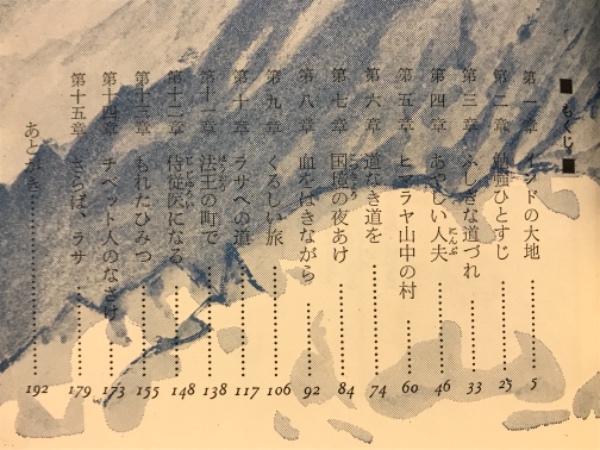 ■もくじ■
第一章 インドの大地 5
第二章 勉強ひとすじ 25
第三章 ふしぎな道づれ 33
第四章 あやしい人夫 46
第五章 ヒマラヤ山中の村 60
第六章 道なき道を 74
第七章 国境の夜あけ 84
第八章 血をはきながら 92
第九章 くるしい旅 106
第十章 ラサへの道 117
第十一章 法王の町で 138
第十二章 侍従医になる 148
第十三章 もれたひみつ 155
第十四章 チベット人のなさけ 173
第十五章 さらば、ラサ 179
あとがき 192